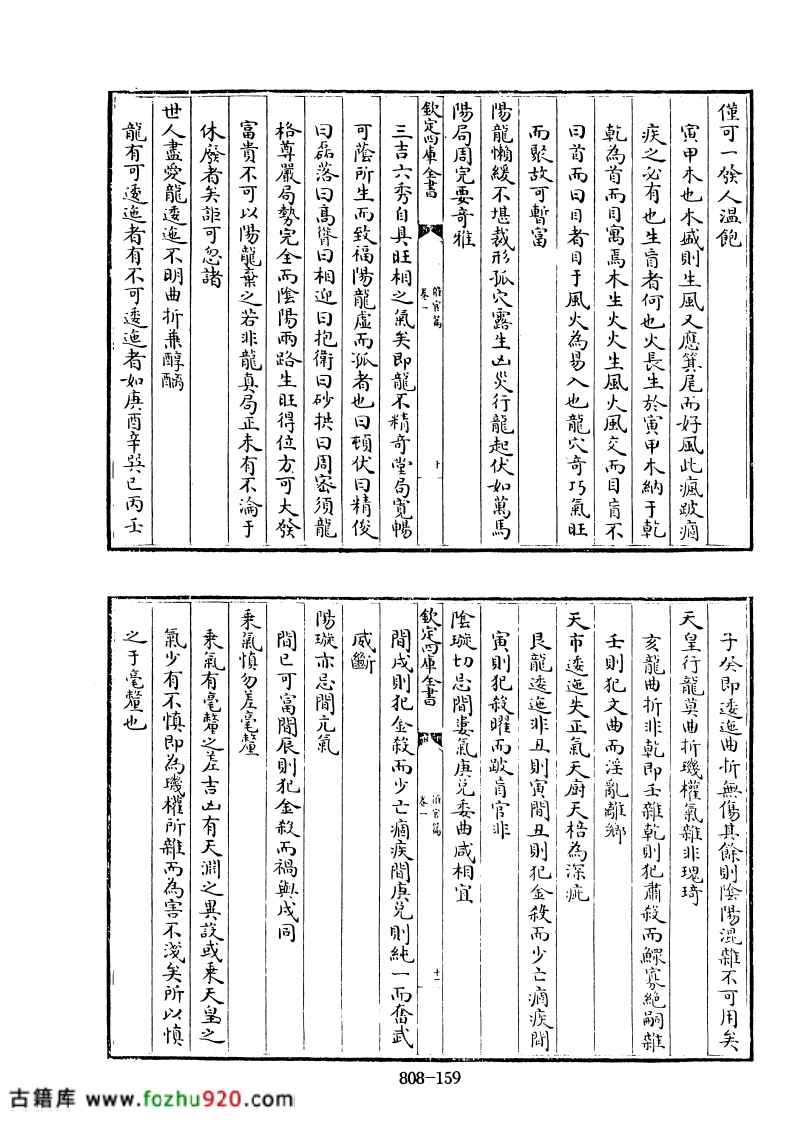 僅可一發人温飽
寅甲木也木盛則生風又應箕尾而好風此瘋跛癎
疾之必有也生盲者何也火長生於寅甲木納于乾
乾為首而目寓焉木生火火生風火風交而目盲不
曰首而曰目者目于風火為易入也龍穴奇巧氣旺
而聚故可暫富
陽龍懶緩不堪裁形孤穴露生凶災行龍起伏如萬馬
陽局周完要奇雅
欽定四庫全書
催官篇
卷一
十
三吉六秀自具旺相之氣矣即龍不精奇堂局寬暢
可蔭所生而致福陽龍虚而孤者也曰頓伏曰精俊
曰磊落曰高聳曰相迎曰抱衛曰砂拱曰周宻須龍
格尊嚴局勢完全而陰陽兩路生旺得位方可大發
富貴不可以陽龍棄之若非龍真局正未有不淪于
休廢者矣詎可忽諸
世人盡愛龍逶迤不明曲折兼醇醨
龍有可逶迤者有不可逶迤者如庚酉辛巽巳丙壬
子癸即逶迤曲折無傷其餘則陰陽混雜不可用矣
天皇行龍莫曲折璣權氣雜非瑰琦
亥龍曲折非乾即壬雜乾則犯肅殺而鰥寡絶嗣雜
壬則犯文曲而淫亂離鄉
天市逶迤失正氣天厨天棓為深疵
艮龍逶迤非丑則寅間丑則犯金殺而少亡癎疾間
寅則犯殺曜而跛盲官非
陰璇切忌間婁氣庚兌委曲咸相宜
欽定四庫全書
催官篇
卷一
十一
間戌則犯金殺而少亡癎疾間庚兌則純一而奮武
威斷
陽璇亦忌間亢氣
間巳可富間辰則犯金殺而禍與戌同
乘氣慎勿差毫釐
乘氣有毫釐之差吉凶有天淵之異設或乘天皇之
氣少有不慎即為璣權所雜而為害不淺矣所以慎
之于毫釐也
808-159
古籍库 www.fozhu920.com